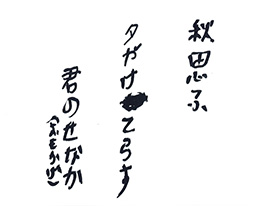 秋思ふ
夕がけてらす
君のせなか
(おもかげ)